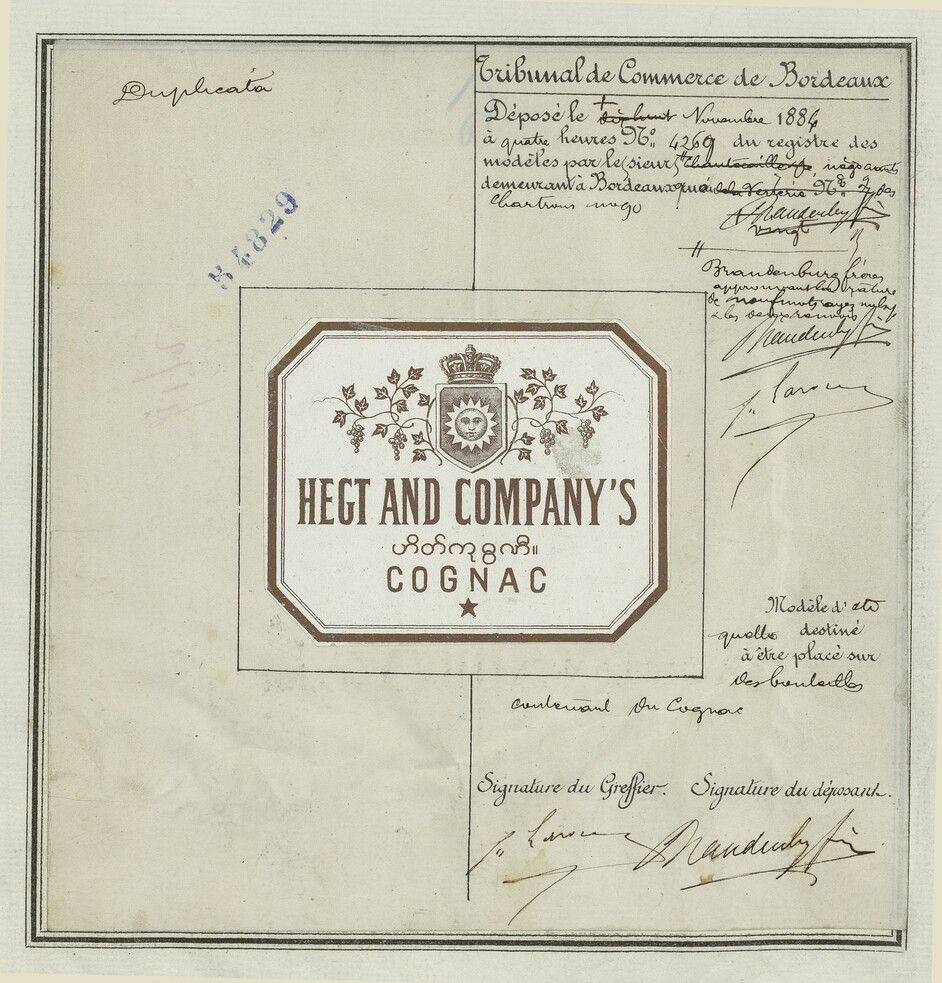 Duplicata
Tribunal de Commerce de Bordeaux
Déposé le dix huit Novembre 1884
à quatre heures No. 4269 du registre des
modèles par le (sieur) Chantecaille, négociants
demeurant à Bordeaux quai de la Verrerie No. 2 des
Chartrons no 90
vingt
Brandenburg frères
approuvant la rature
de neuf mots rayés nuls
& les deux renvois
54829
HEGT AND COMPANY'S
ဟိတ်ကုမ္ပဏီ။
COGNAC
Modèle d'éti
quette destiné
à être placé sur
des bouteilles
contenant du Cognac
Signature du Greffier. Signature du déposant.